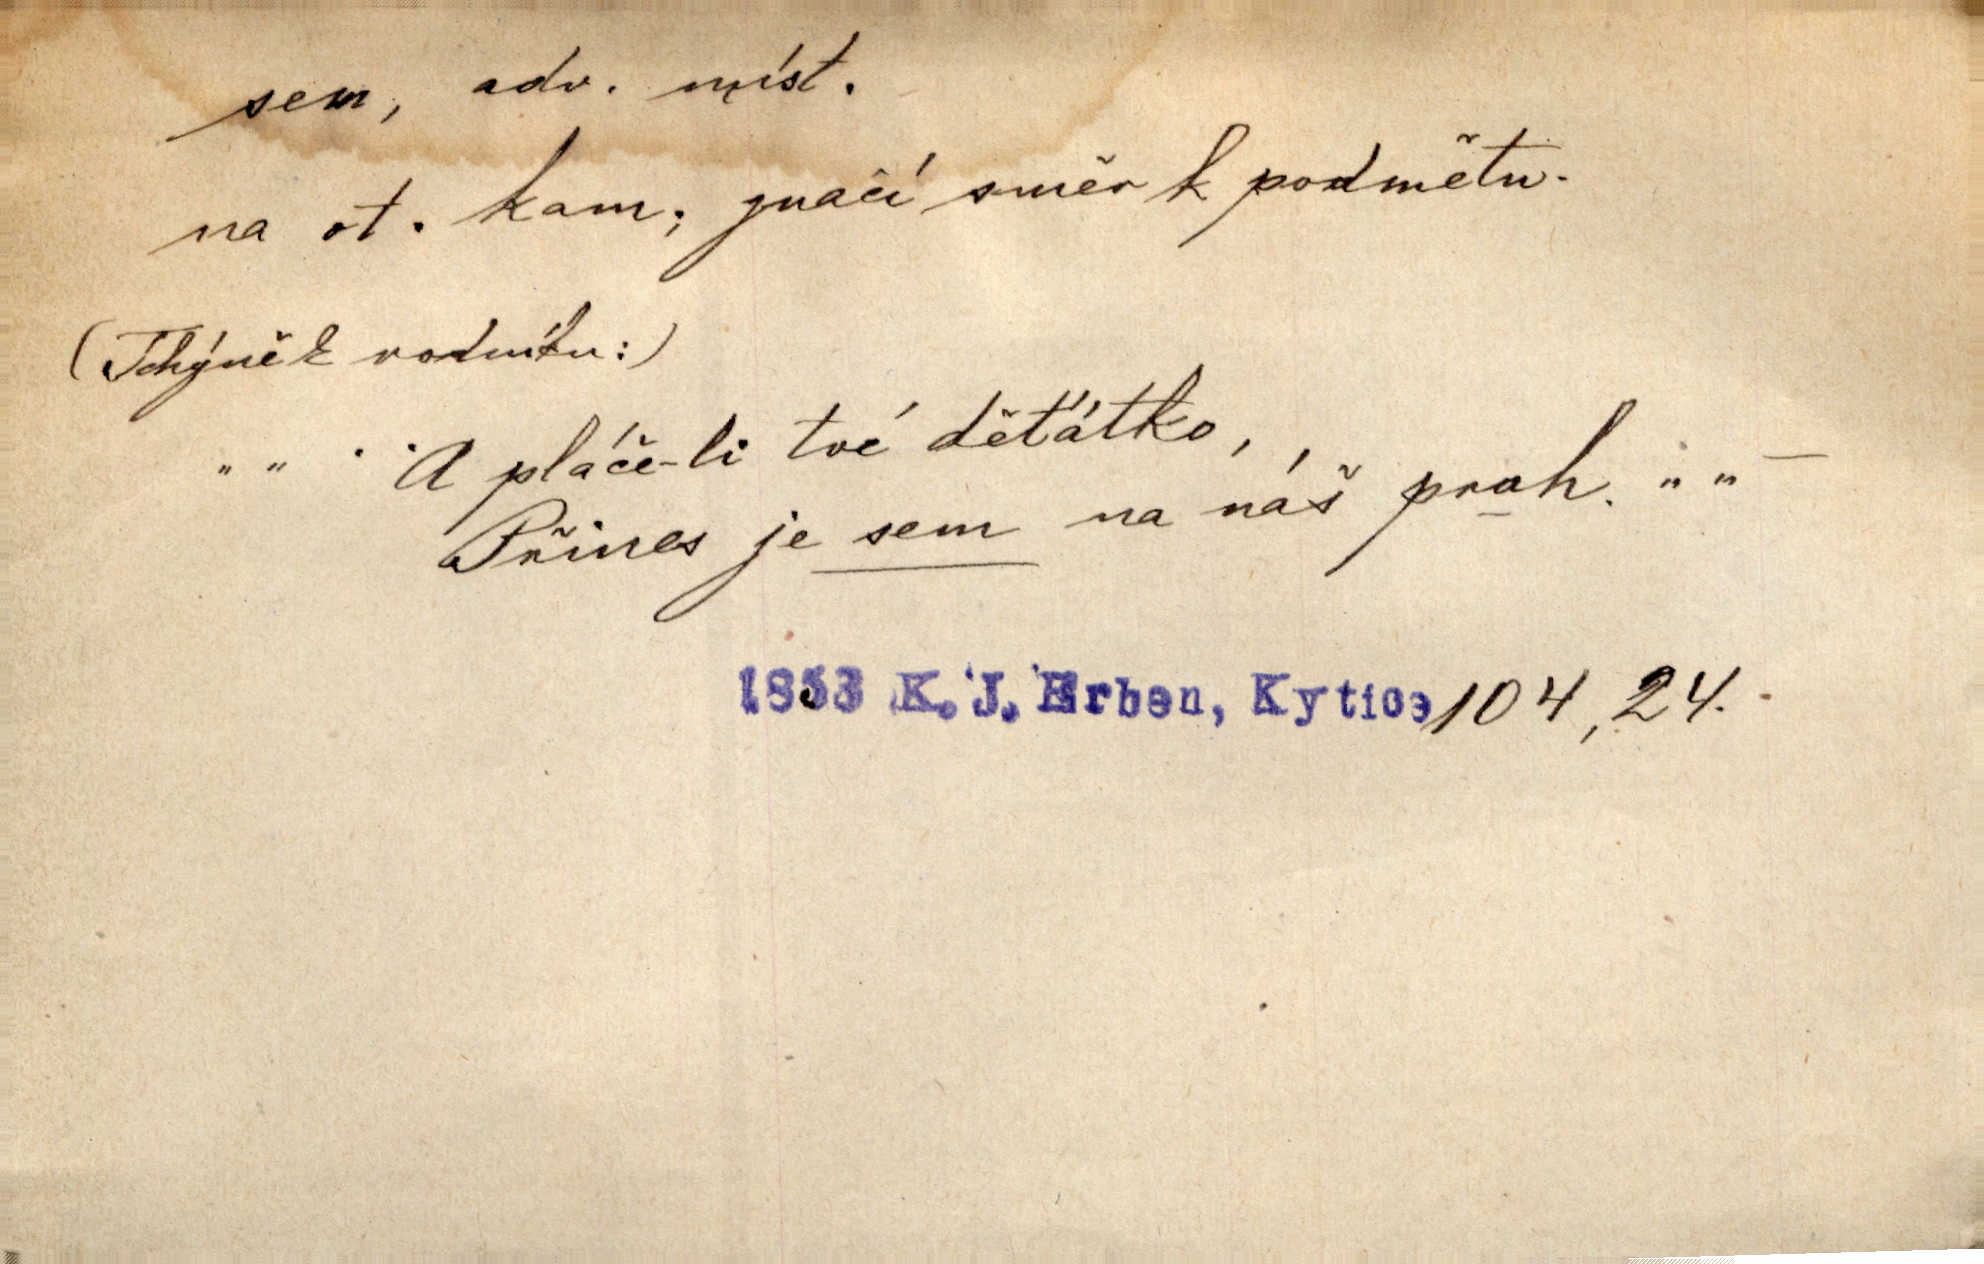 sem, adv. míst.
na ot. kam; značí směr k podmětu.
(Tchýně k vodníku:)
" " · · A pláče-li tvé děťátko,
Přines je sem na náš prah. " " —
1853 K. J. Erben, Kytice 104, 24.